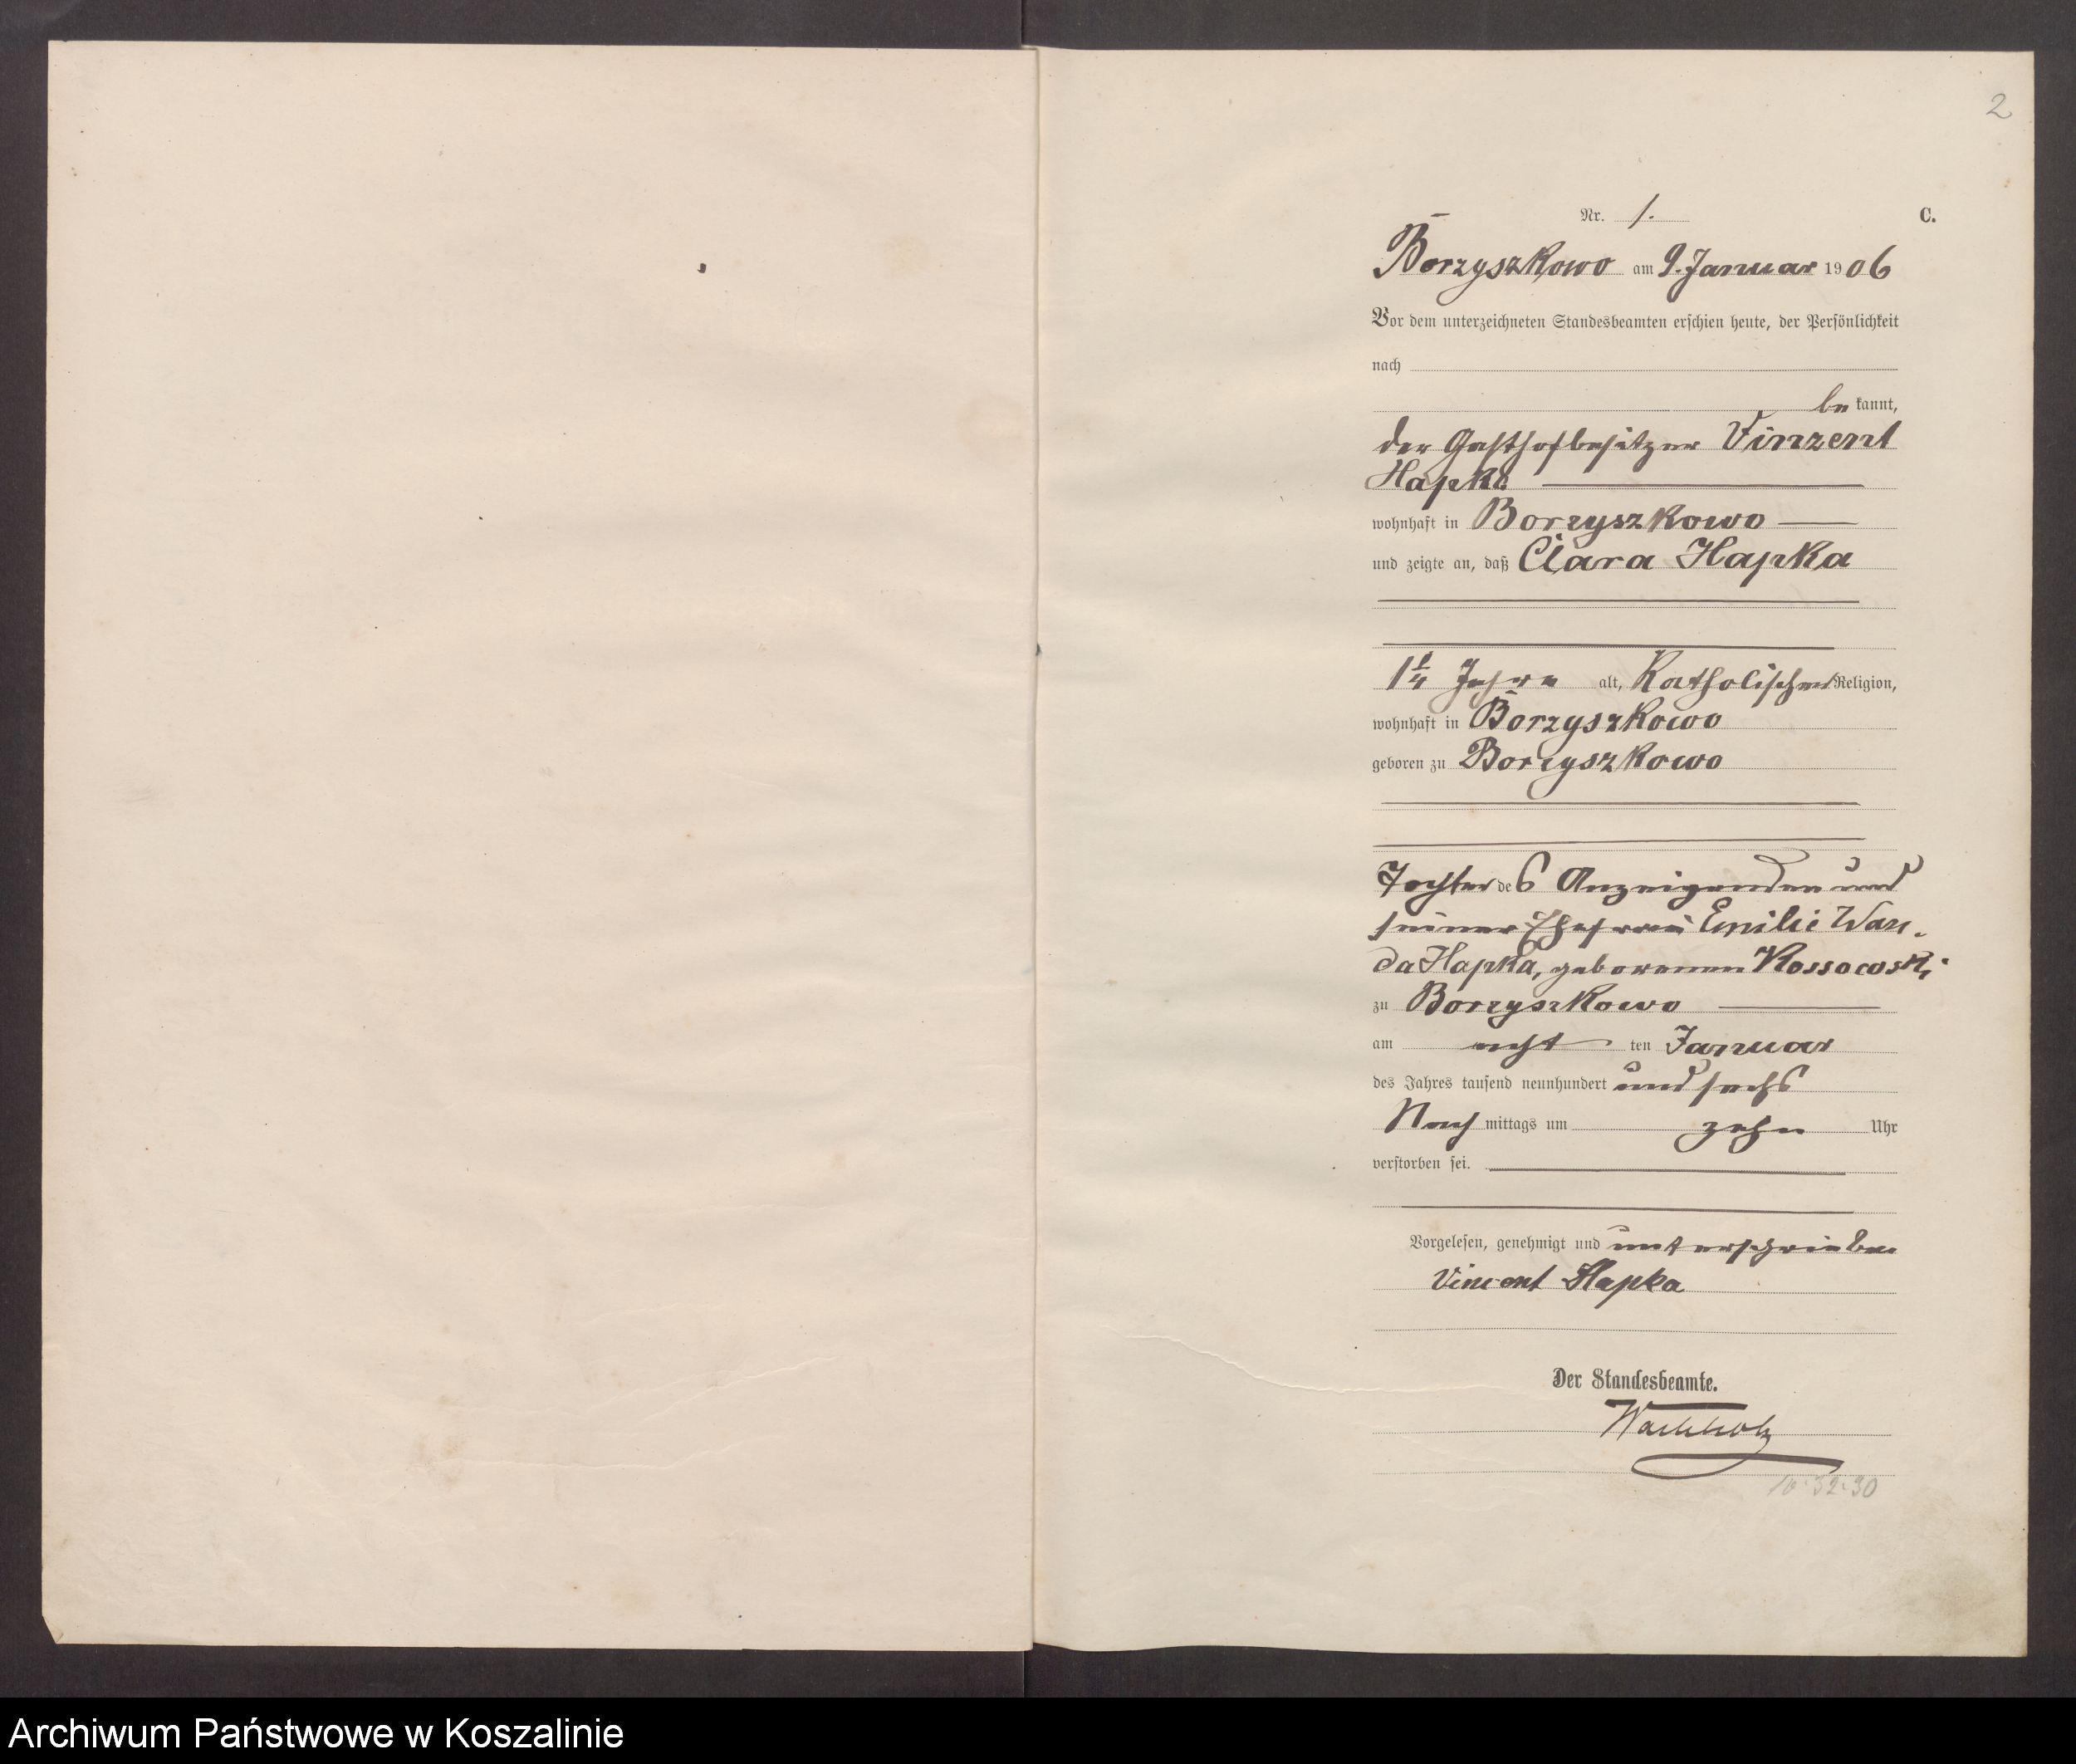 2
Nr. 1.
C.
Borzyszkowo am 9. Januar 1906
Vor dem unterzeichneten Standesbeamten erschien heute, der Persönlichkeit
nach
bekannt,
der Gasthofbesitzer Vinzent
Hapka
wohnhaft in Borzyszkowo
und zeigte an, daß Clara Hapka
1 1/4 Jahre alt, Katholischer Religion,
wohnhaft in Borzyszkowo
geboren zu Borzyszkowo
Tochter des Anzeigenden und
seiner Ehefrau Emilie Wan-
da Hapka, geborenen Kossowski
zu Borzyszkowo
am acht ten Januar
des Jahres tausend neunhundert und sechs
Nachmittags um zehn Uhr
verstorben sei.
Vorgelesen, genehmigt und unterschrieben
Vincent Hapka
Der Standesbeamte.
Wachholz
10.32.30
Archiwum Państwowe w Koszalinie